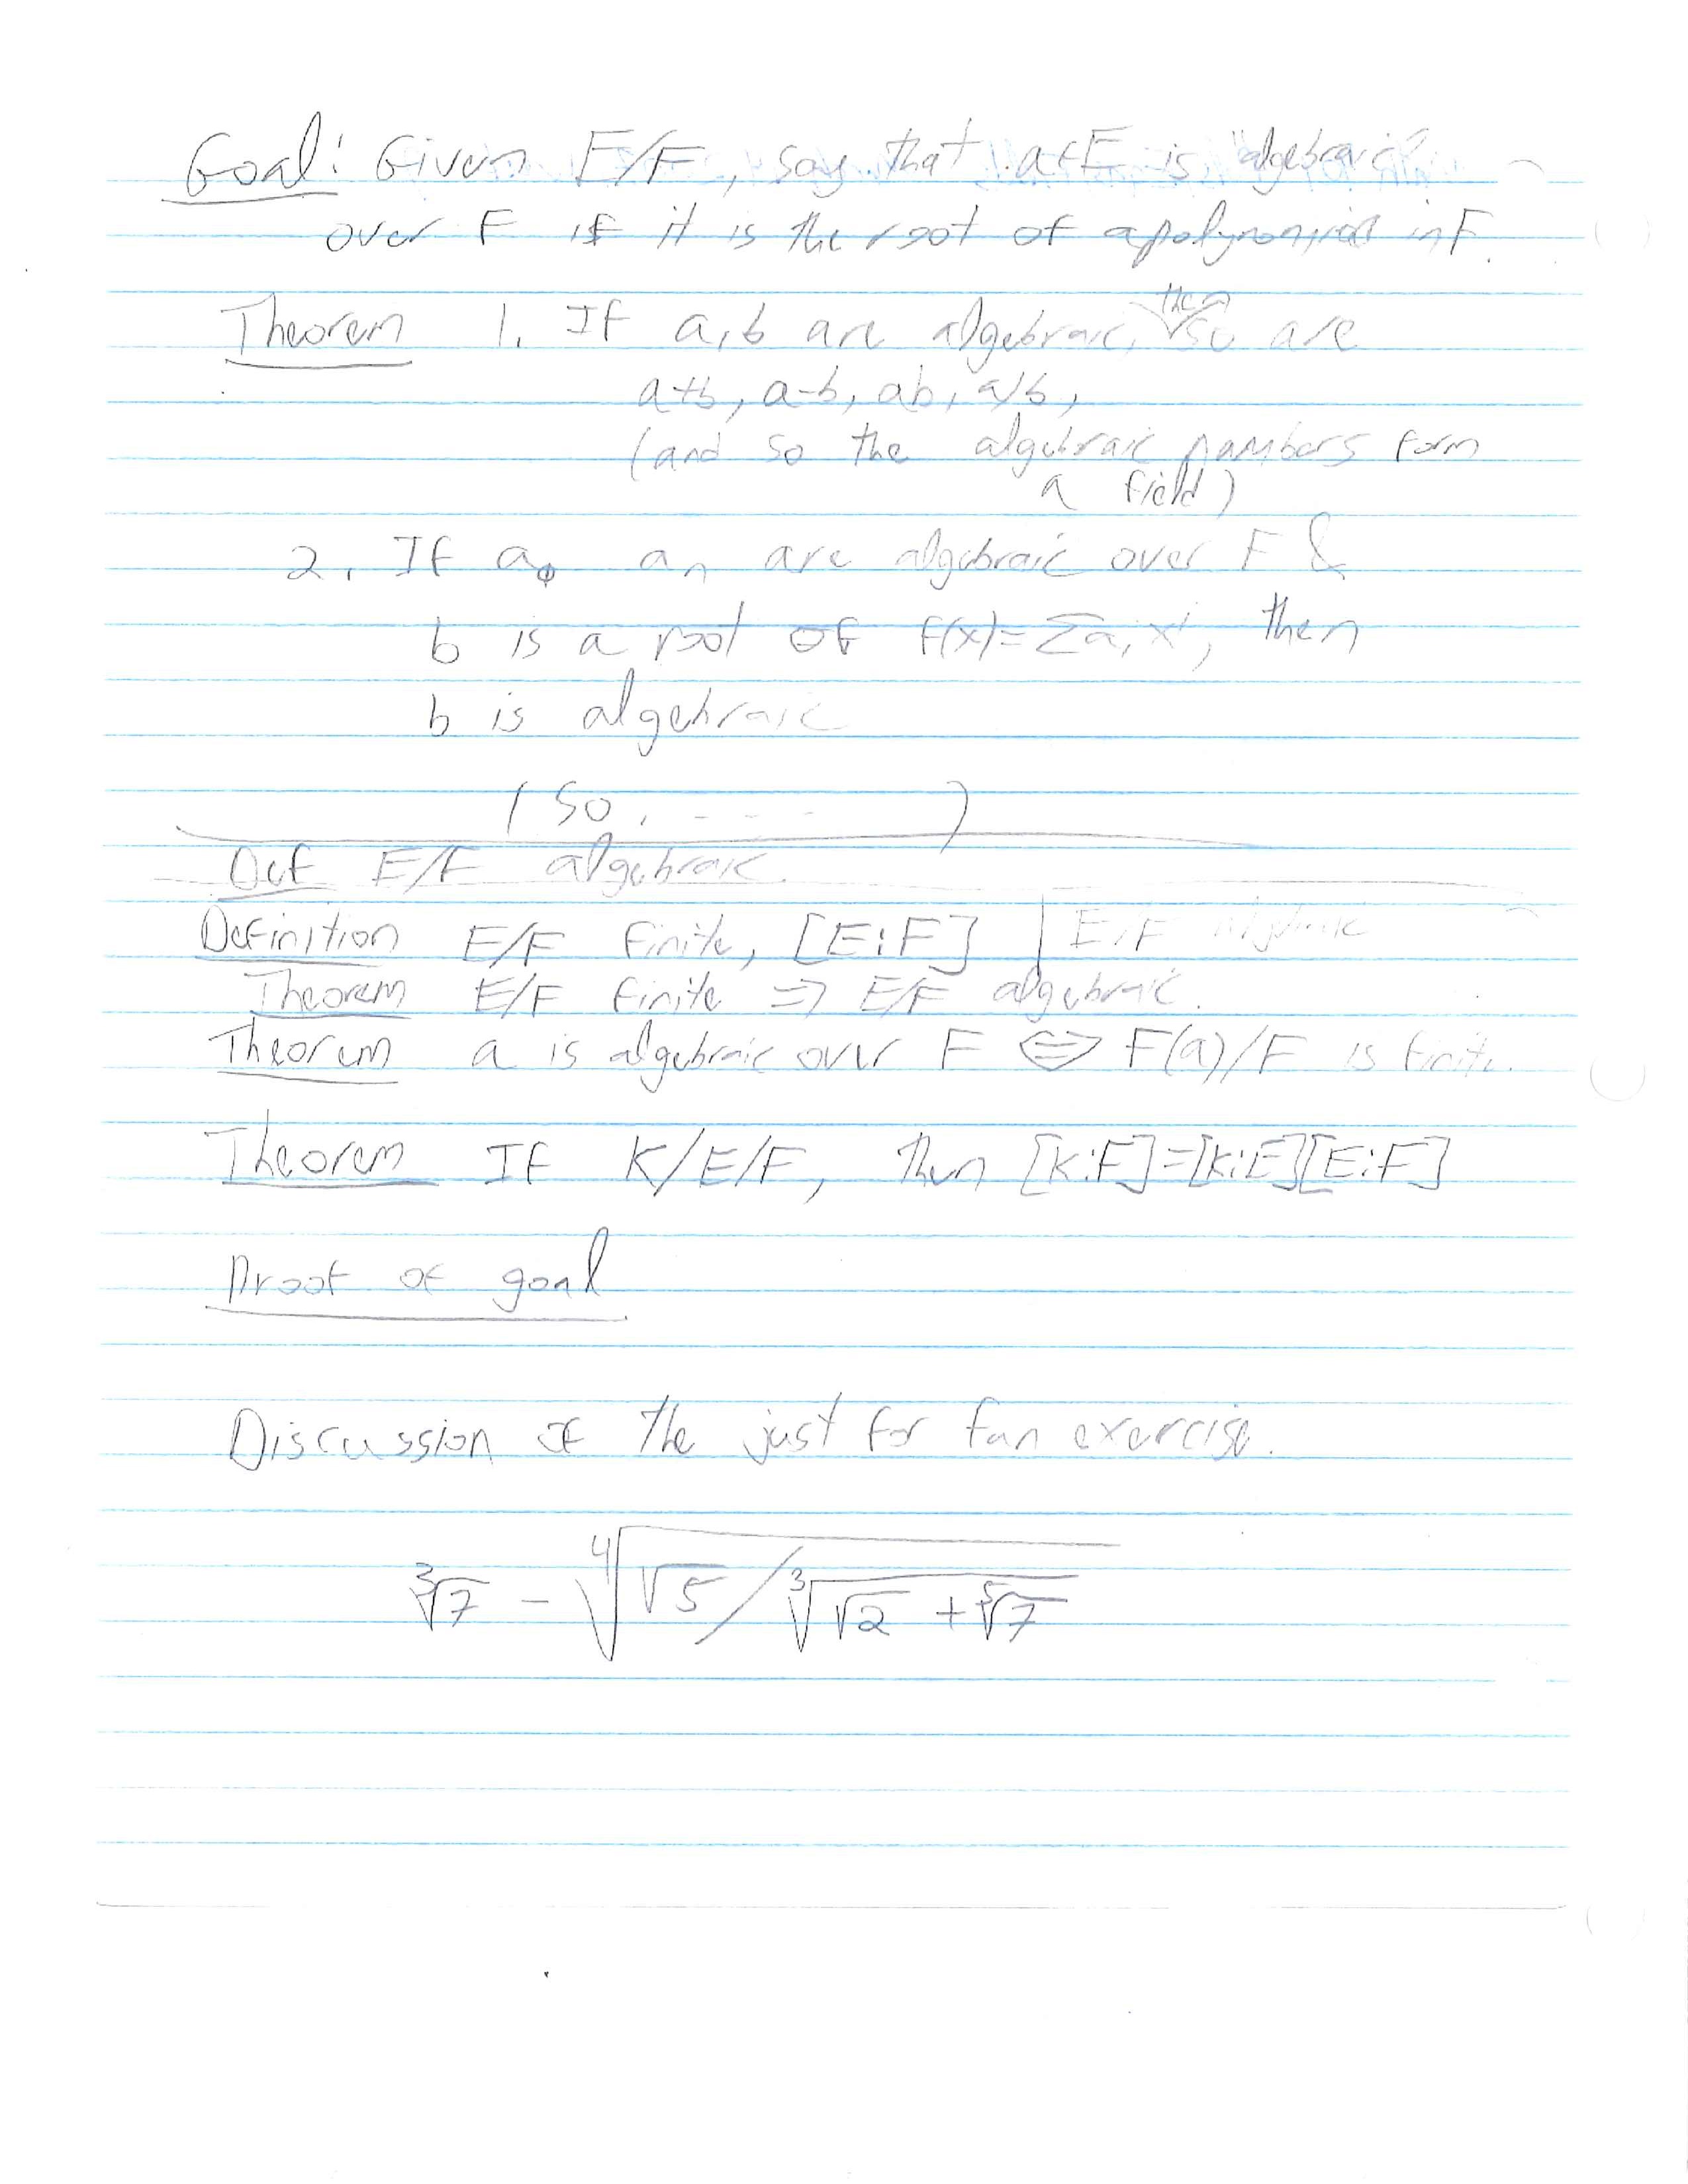 Goal: Given E/F, say that a∈E is "algebraic"
over F if it is the root of a polynomial in F.
Theorem 1. If a,b are algebraic, then so are
a+b, a-b, ab, a/b,
(and so the algebraic numbers form
a field)
2. If a₀ aₙ are algebraic over F &
b is a root of f(x)=Σaᵢxⁱ, then
b is algebraic
(So, - - - -)
Def E/F algebraic.
Definition E/F finite, [E:F] | E/F algebraic
Theorem E/F finite ⇒ E/F algebraic.
Theorem a is algebraic over F ⇔ F(a)/F is finite.
Theorem If K/E/F, then [K:F]=[K:E][E:F]
Proof of goal
Discussion of the just for fun exercise.
∛7 - ∜(√5 / ∛(√2 + ⁵√7))